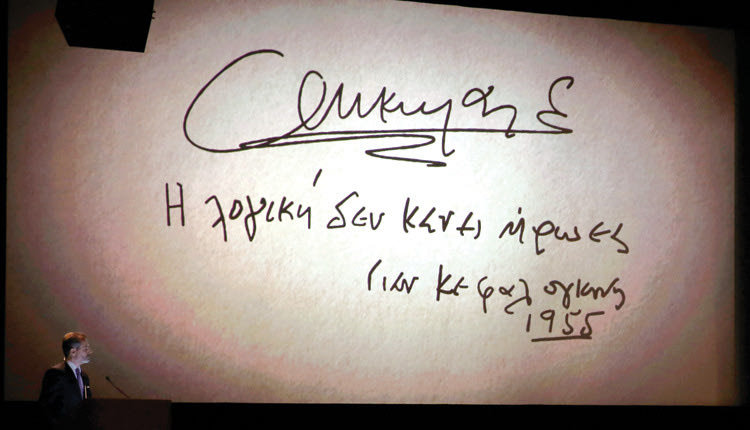 Η λογική δεν κανει ήρωες
κεφαλογιαννης
1955